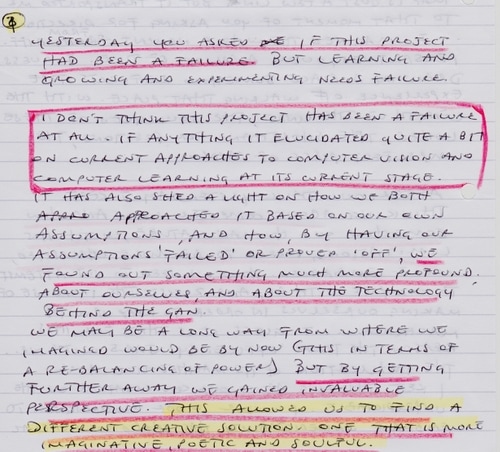 YESTERDAY YOU ASKED ME IF THIS PROJECT
HAD BEEN A FAILURE BUT LEARNING AND
GROWING AND EXPERIMENTING NEEDS FAILURE.
I DON'T THINK THIS PROJECT HAS BEEN A FAILURE
AT ALL. IF ANYTHING IT ELUCIDATED QUITE A BIT
ON CURRENT APPROACHES TO COMPUTER VISION AND
COMPUTER LEARNING AT ITS CURRENT STAGE.
IT HAS ALSO SHED A LIGHT ON HOW WE BOTH
APPROACHED IT BASED ON OUR OWN
ASSUMPTIONS, AND HOW, BY HAVING OUR
ASSUMPTIONS 'FAILED' OR PROVEN 'OFF', WE
FOUND OUT SOMETHING MUCH MORE PROFOUND.
ABOUT OURSELVES, AND ABOUT THE TECHNOLOGY
BEHIND THE GAN.
WE MAY BE A LONG WAY FROM WHERE WE
IMAGINED WOULD BE BY NOW (THIS IN TERMS OF
A RE-BALANCING OF POWER) BUT BY GETTING
FURTHER AWAY WE GAINED INVALUABLE
PERSPECTIVE. THIS ALLOWED US TO FIND A
DIFFERENT CREATIVE SOLUTION. ONE THAT IS MORE
IMAGINATIVE, POETIC AND SOULFUL.